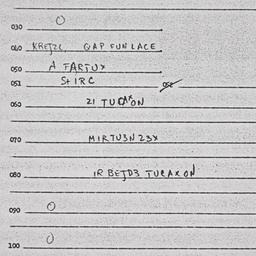 030 0
040 KRETZC GAP FUNLACE
050 A FARTUX
051 St IRC 052
060 21 TURAXON
070 MIRTU3N 23X
080 IR BETD3 TURAXON
090 0
100 0